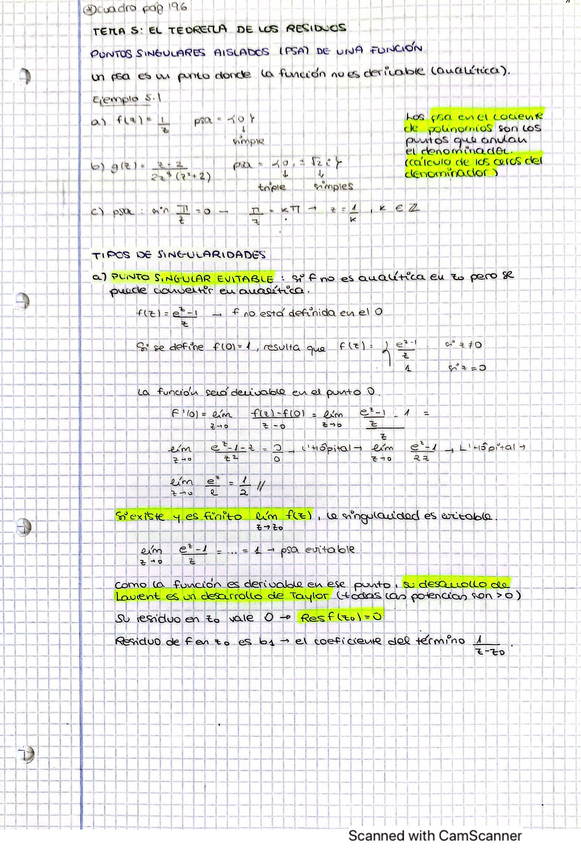 (*) cuadro pag 196
TEMA 5: EL TEOREMA DE LOS RESIDUOS
PUNTOS SINGULARES AISLADOS (PSA) DE UNA FUNCIÓN
Un psa es un punto donde la función no es derivable (analítica).
Ejemplo 5.1
a) f(z) = 1/z psa = {0}
↓
simple
Los psa en el cociente
de polinomios son los
puntos que anulan
el denominador.
(cálculo de los ceros del
denominador)
b) g(z) = z-2 / 2z³(z²+2) psa = {0, ±√2 i}
↓ ↓
triple simples
c) psa: sin π/z = 0 → π/z = kπ → z = 1/k, k ∈ ℤ
TIPOS DE SINGULARIDADES
a) PUNTO SINGULAR EVITABLE: si f no es analítica en z₀ pero se
puede convertir en analítica.
f(z) = e^z-1 / z → f no está definida en el 0
Si se define f(0)=1, resulta que f(z) = { e^z-1 / z si z≠0
1 si z=0
La función será derivable en el punto 0.
f'(0) = lím z→0 f(z)-f(0) / z-0 = lím z→0 (e^z-1 / z - 1) / z =
lím z→0 e^z-1-z / z² = 0/0 → L'Hôpital → lím z→0 e^z-1 / 2z → L'Hôpital →
lím z→0 e^z/2 = 1/2 //
Si existe y es finito lím z→z₀ f(z), la singularidad es evitable.
lím z→0 e^z-1 / z = ... = 1 → psa evitable
Como la función es derivable en ese punto, su desarrollo de
Laurent es un desarrollo de Taylor (todas las potencias son >0)
Su residuo en z₀ vale 0 → Res f(z₀)=0
Residuo de f en z₀ es b₁ → el coeficiente del término 1 / z-z₀.
Scanned with CamScanner